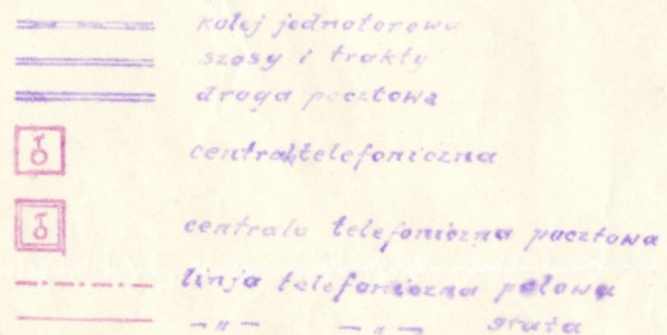 kolej jednotorowa
szosy i trakty
droga pocztowa
centrala telefoniczna
centrala telefoniczna pocztowa
linja telefoniczna polowa
— " — — " — stała